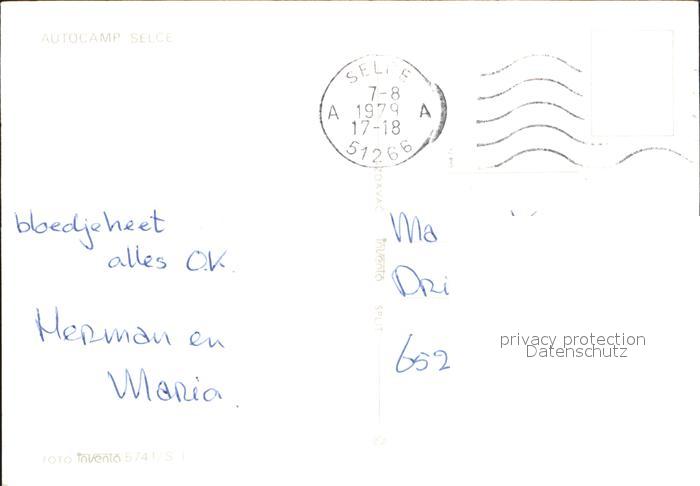 AUTOCAMP SELCE
SELCE
7-8
A 1979 A
17-18
51266
bloedjeheet
alles O.K.
Herman en
Maria.
Ma
Dri
652
Inventa SPLIT
privacy protection
Datenschutz
FOTO Inventa 5741/S